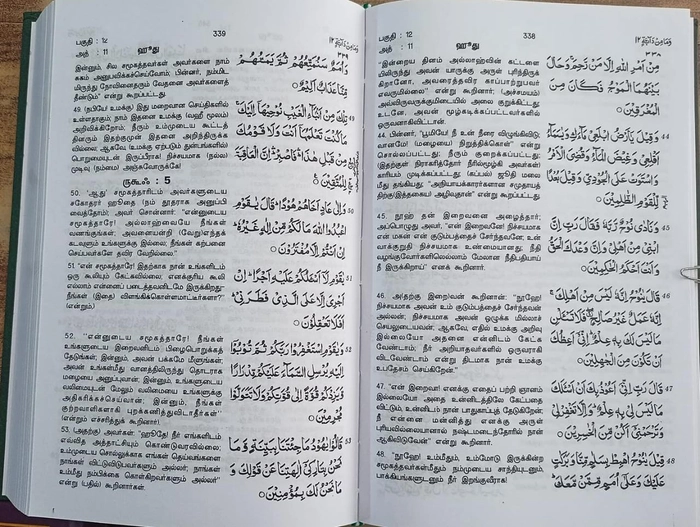 பகுதி : 12
அத் : 11
ஹூது
339
وَمَا مِنْ دَآبَّةٍ ١٢
٣٣٩
இன்னும், சில சமூகத்தவர் அவர்களை நாம்
சுகம் அனுபவிக்கச்செய்வோம்; பின்னர், நம்மிட
மிருந்து நோவினைதரும் வேதனை அவர்களைத்
தீண்டும்" என்று கூறப்பட்டது.
وَاُمَمٌ سَنُمَتِّعُهُمْ ثُمَّ يَمَسُّهُمْ
مِّنَّا عَذَابٌ اَلِيْمٌ
49. (நபியே உமக்கு) இது மறைவான செய்திகளில்
உள்ளதாகும்; நாம் இதனை உமக்கு (வஹீ மூலம்)
அறிவிக்கிறோம்; நீரும் உம்முடைய கூட்டத்
தினரும் இதற்குமுன் இதனை அறிந்திருக்க
வில்லை; ஆகவே, (உமக்கு ஏற்படும் துன்பங்களில்)
பொறுமையுடன் இருப்பீராக! நிச்சயமாக (நல்ல)
முடிவு (நம்மை) அஞ்சுவோருக்கே!
تِلْكَ مِنْ اَنْۢبَآءِ الْغَيْبِ نُوْحِيْهَاۤ اِلَيْكَ
مَا كُنْتَ تَعْلَمُهَاۤ اَنْتَ وَلَا قَوْمُكَ
مِنْ قَبْلِ هٰذَا فَاصْبِرْ اِنَّ الْعَاقِبَةَ
لِلْمُتَّقِيْنَ
ருகூஃ : 5
50. 'ஆது' சமூகத்தாரிடம் அவர்களுடைய
சகோதரர் ஹூதை (நம் தூதராக அனுப்பி
வைத்தோம்); அவர் சொன்னார்: "என்னுடைய
சமூகத்தாரே! அல்லாஹ்வையே நீங்கள்
வணங்குங்கள்; அவனையன்றி (வேறு)எந்தக்
கடவுளும் உங்களுக்கு இல்லை; நீங்கள் கற்பனை
செய்பவர்களே தவிர வேறில்லை.
وَاِلٰى عَادٍ اَخَاهُمْ هُوْدًا قَالَ يٰقَوْمِ
اعْبُدُوا اللّٰهَ مَا لَكُمْ مِّنْ اِلٰهٍ غَيْرُهٗ
اِنْ اَنْتُمْ اِلَّا مُفْتَرُوْنَ
51. "என் சமூகத்தாரே! இதற்காக நான் உங்களிடம்
ஒரு கூலியும் கேட்கவில்லை; எனக்குரிய கூலி
எல்லாம் என்னைப் படைத்தவனிடமே இருக்கிறது;
நீங்கள் (இதை) விளங்கிக்கொள்ளமாட்டீர்களா?"
(என்றும்)
يٰقَوْمِ لَاۤ اَسْئَلُكُمْ عَلَيْهِ اَجْرًا اِنْ
اَجْرِيَ اِلَّا عَلَى الَّذِيْ فَطَرَنِيْ
اَفَلَا تَعْقِلُوْنَ
52. "என்னுடைய சமூகத்தாரே! நீங்கள்
உங்களுடைய இறைவனிடம் பிழைபொறுக்கத்
தேடுங்கள்; இன்னும், அவன் பக்கமே மீளுங்கள்;
அவன் உங்கள்மீது வானத்திலிருந்து தொடராக
மழையை அனுப்புவான்; இன்னும், உங்களுடைய
வலிமையுடன் மேலும் வலிமையை உங்களுக்கு
அதிகரிக்கச்செய்வான்; இன்னும், நீங்கள்
குற்றவாளிகளாகி புறக்கணித்துவிடாதீர்கள்"
(என்றும் எச்சரித்துக் கூறினார்).
وَيٰقَوْمِ اسْتَغْفِرُوْا رَبَّكُمْ ثُمَّ تُوْبُوْۤا
اِلَيْهِ يُرْسِلِ السَّمَآءَ عَلَيْكُمْ مِّدْرَارًا
وَّيَزِدْكُمْ قُوَّةً اِلٰى قُوَّتِكُمْ وَلَا تَتَوَلَّوْا
مُجْرِمِيْنَ
53. (அதற்கு) அவர்கள்: "ஹூதே! நீர் எங்களிடம்
எவ்வித அத்தாட்சியும் கொண்டுவரவில்லை;
உம்முடைய சொல்லுக்காக எங்கள் தெய்வங்களை
நாங்கள் விட்டுவிடுபவர்களும் அல்லர்; நாங்கள்
உம்மீது நம்பிக்கை கொள்கிறவர்களும் அல்லர்"
என்று (பதில்) கூறினார்கள்.
قَالُوْا يٰهُوْدُ مَا جِئْتَنَا بِبَيِّنَةٍ وَّمَا
نَحْنُ بِتَارِكِيْۤ اٰلِهَتِنَا عَنْ قَوْلِكَ وَ
مَا نَحْنُ لَكَ بِمُؤْمِنِيْنَ
பகுதி : 12
அத் : 11
ஹூது
338
وَمَا مِنْ دَآبَّةٍ ١٢
٣٣٨
"இன்றைய தினம் அல்லாஹ்வின் கட்டளை
யிலிருந்து அவன் யாருக்கு அருள் புரிந்திருக்
கிறானோ, அவரைத்தவிர காப்பாற்றுபவர்
எவருமில்லை" என்று கூறினார்; (அச்சமயம்)
அவ்விருவருக்குமிடையில் அலை குறுக்கிட்டது;
உடனே, அவன் மூழ்கடிக்கப்பட்டவர்களில்
ஒருவனாகிவிட்டான்.
مِنْ اَمْرِ اللّٰهِ اِلَّا مَنْ رَّحِمَ وَحَالَ
بَيْنَهُمَا الْمَوْجُ فَكَانَ مِنَ
الْمُغْرَقِيْنَ
44. பின்னர், "பூமியே! நீ உன் நீரை விழுங்கிவிடு;
வானமே! (மழையை) நிறுத்திக்கொள்" என்று
சொல்லப்பட்டது; நீரும் குறைக்கப்பட்டது;
(நிராகரித்தோர் நீரில்மூழ்கி அவர்கள்)
காரியம் முடிக்கப்பட்டது; (கப்பல்) ஜூதி மலை
மீது தங்கியது; "அநியாயக்காரர்களான சமுதாயத்
திற்கு(இத்தகைய) அழிவுதான்" என்று கூறப்பட்டது.
وَقِيْلَ يٰۤاَرْضُ ابْلَعِيْ مَآءَكِ وَيٰسَمَآءُ
اَقْلِعِيْ وَغِيْضَ الْمَآءُ وَقُضِيَ الْاَمْرُ
وَاسْتَوَتْ عَلَى الْجُوْدِيِّ وَقِيْلَ بُعْدًا
لِّلْقَوْمِ الظّٰلِمِيْنَ
45. நூஹ் தன் இறைவனை அழைத்தார்;
அப்பொழுது அவர், "என் இறைவனே! நிச்சயமாக
என் மகன் என் குடும்பத்தைச் சேர்ந்தவனே; உன்
வாக்குறுதி நிச்சயமாக உண்மையானது; நீதி
வழங்குவோர்களிலெல்லாம் மேலான நீதிபதியாய்
நீ இருக்கிறாய்" எனக் கூறினார்.
وَنَادٰى نُوْحٌ رَّبَّهٗ فَقَالَ رَبِّ اِنَّ
ابْنِيْ مِنْ اَهْلِيْ وَاِنَّ وَعْدَكَ الْحَقُّ
وَاَنْتَ اَحْكَمُ الْحٰكِمِيْنَ
46. அ(தற்கு இறை)வன் கூறினான்: "நூஹே!
நிச்சயமாக அவன் உம் குடும்பத்தைச் சேர்ந்தவன்
அல்லன்; நிச்சயமாக அவன் ஒழுக்க மில்லாச்
செயலுடையவன்; ஆகவே, எதில் உமக்கு அறிவு
இல்லையோ அதனை என்னிடம் கேட்க
வேண்டாம்; நீர் அறியாதவர்களில் ஒருவராகி
விடவேண்டாம் என்று திடமாக நான் உமக்கு
உபதேசம் செய்கிறேன்."
قَالَ يٰنُوْحُ اِنَّهٗ لَيْسَ مِنْ اَهْلِكَ
اِنَّهٗ عَمَلٌ غَيْرُ صَالِحٍ فَلَا تَسْئَلْنِ
مَا لَيْسَ لَكَ بِهٖ عِلْمٌ اِنِّيْۤ اَعِظُكَ
اَنْ تَكُوْنَ مِنَ الْجٰهِلِيْنَ
47. "என் இறைவா! எனக்கு எதைப் பற்றி ஞானம்
இல்லையோ அதை உன்னிடத்திலே கேட்பதை
விட்டும், உன்னிடம் நான் பாதுகாப்புத் தேடுகிறேன்;
நீ என்னை மன்னித்து எனக்கு அருள்
புரியவில்லையானால் நஷ்டமடைந்தோரில் நான்
ஆகிவிடுவேன்" என்று கூறினார்.
قَالَ رَبِّ اِنِّيْۤ اَعُوْذُ بِكَ اَنْ اَسْئَلَكَ
مَا لَيْسَ لِيْ بِهٖ عِلْمٌ وَاِلَّا تَغْفِرْ لِيْ
وَتَرْحَمْنِيْۤ اَكُنْ مِّنَ الْخٰسِرِيْنَ
48. "நூஹே! உம்மீதும், உம்மோடு இருக்கின்ற
சமூகத்தவர்கள்மீதும் நம்முடைய சாந்தியுடனும்,
பாக்கியங்களுடனும் நீர் இறங்குவீராக!
قِيْلَ يٰنُوْحُ اهْبِطْ بِسَلٰمٍ مِّنَّا وَبَرَكٰتٍ
عَلَيْكَ وَعَلٰۤى اُمَمٍ مِّمَّنْ مَّعَكَ